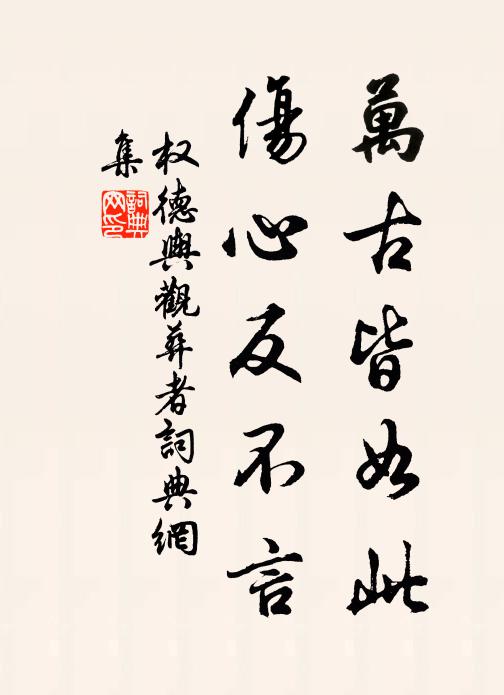 萬古皆如此
傷心反不言
权德輿觀葬者詞典網
集
詞典網印